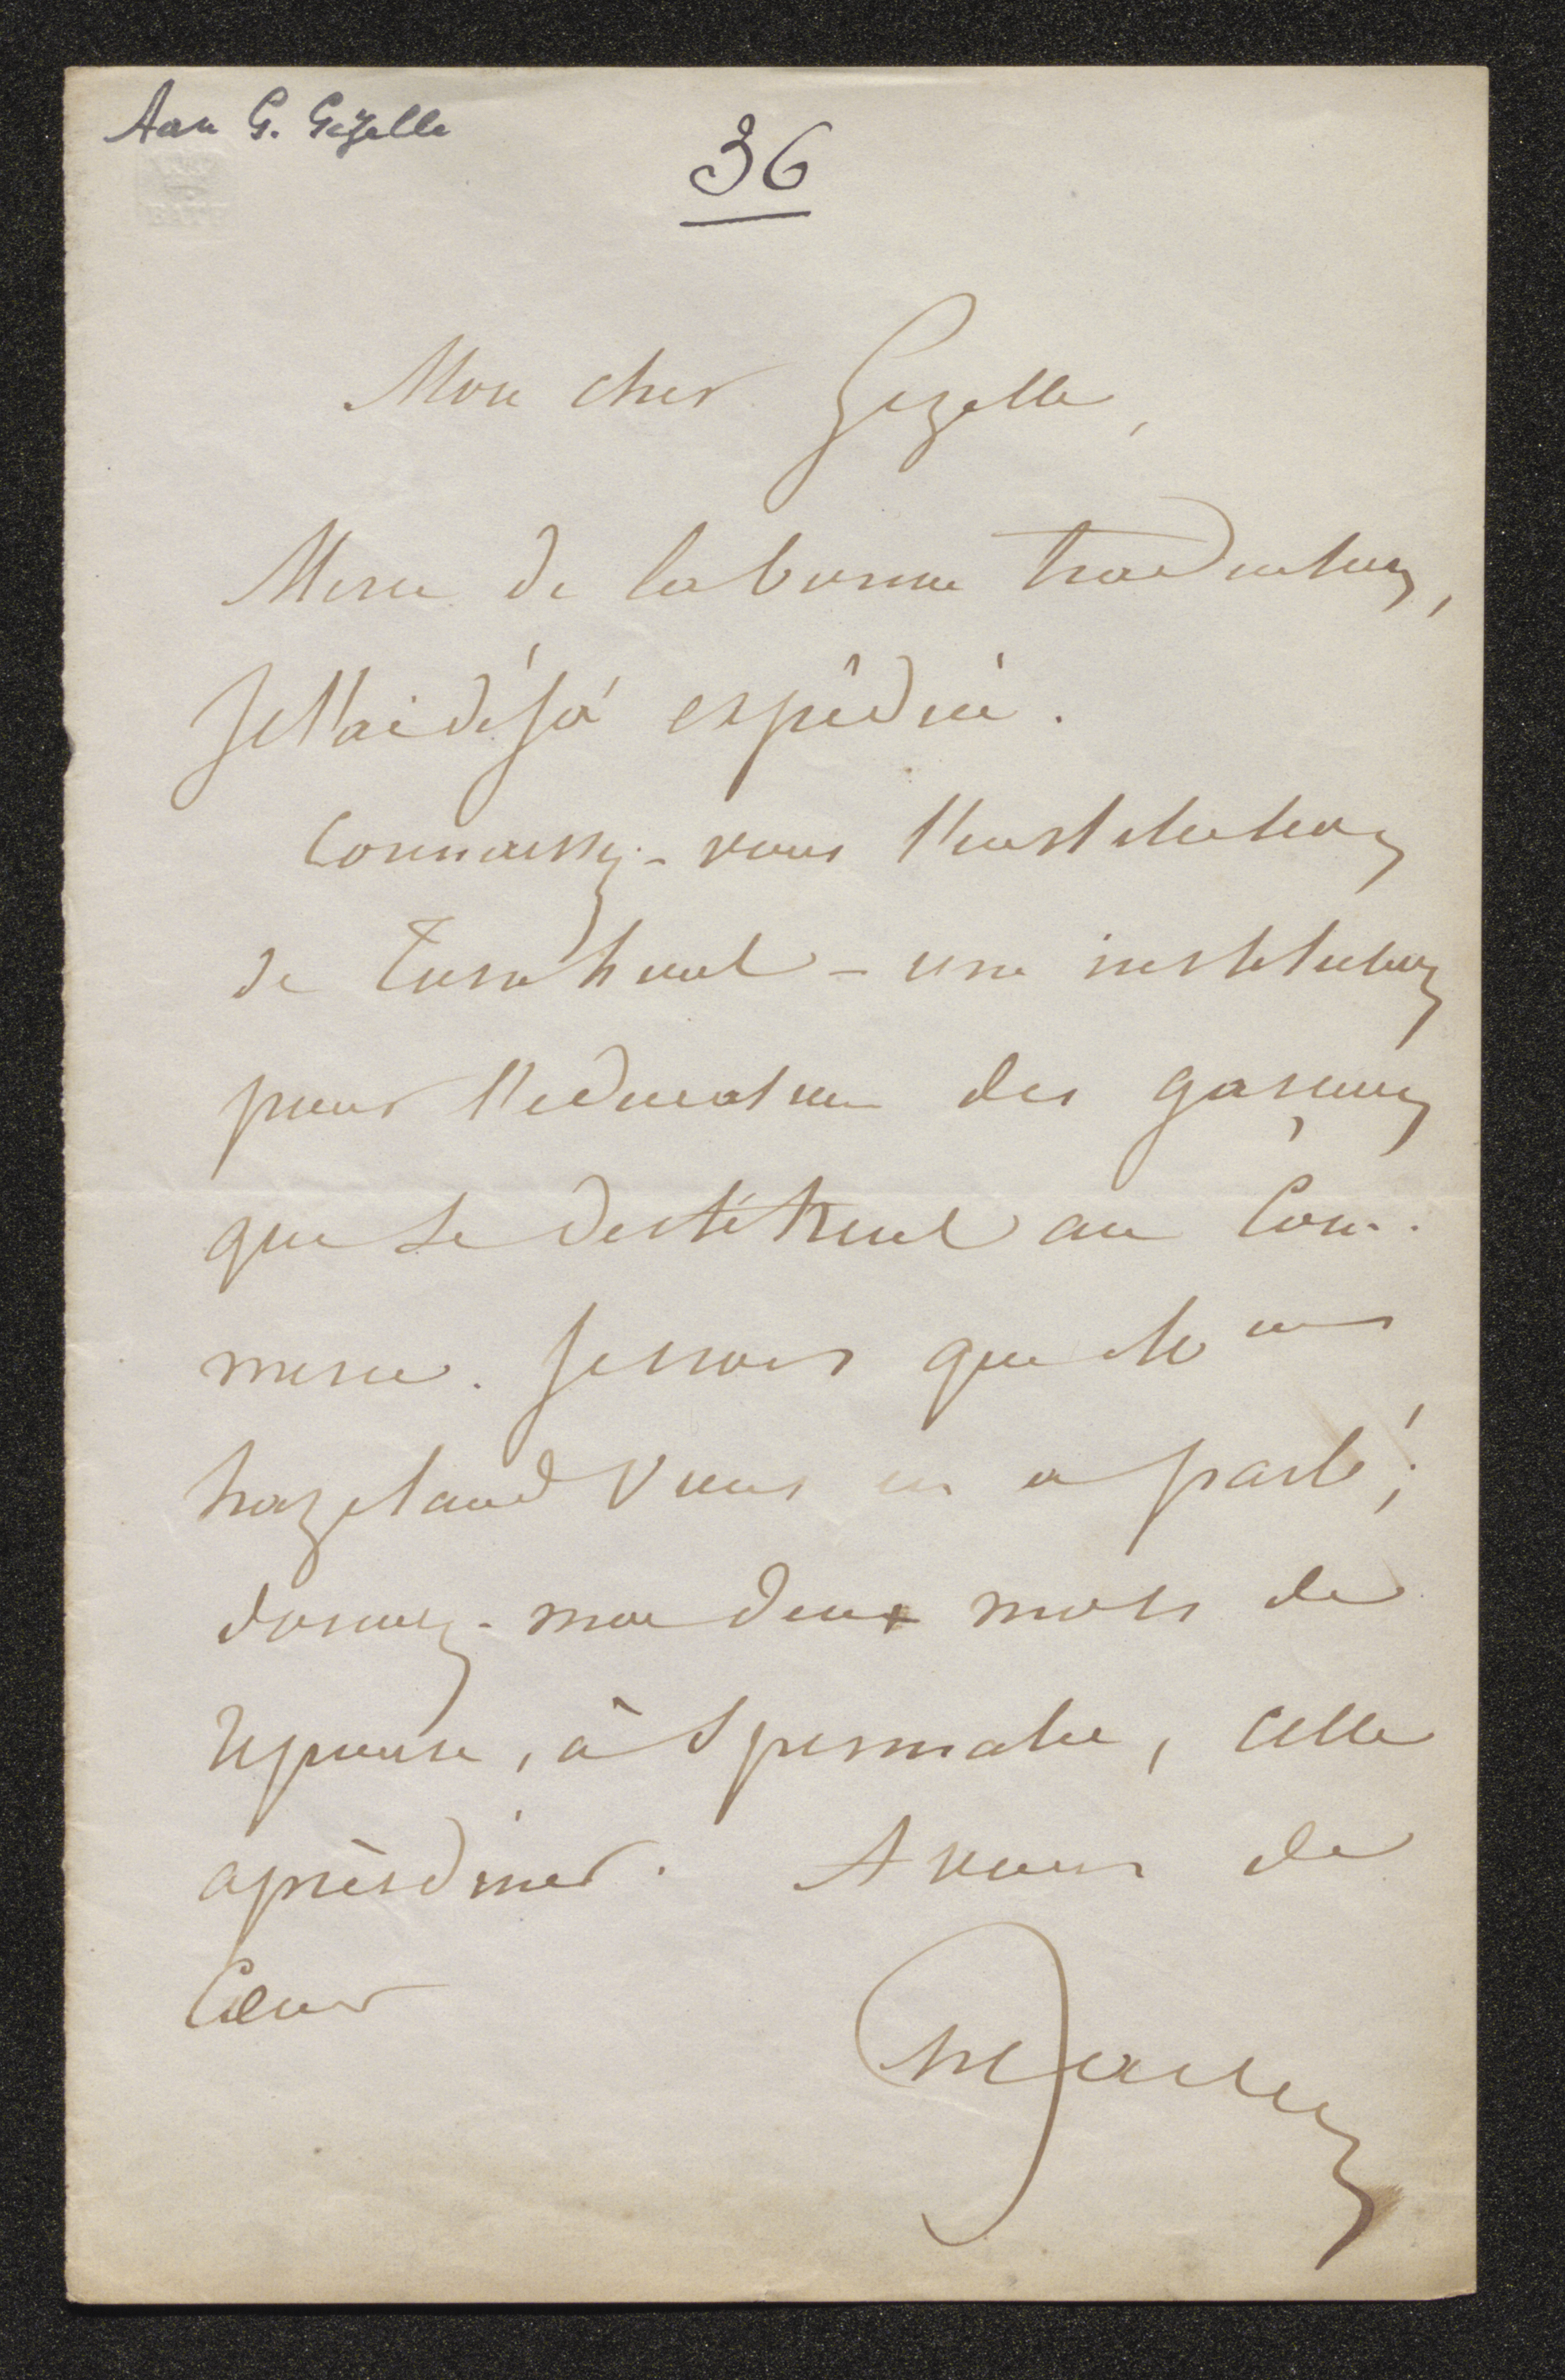 Aan G. Gezelle
36
Mon cher Gezelle,
Merci de la bonne traduction,
Je l'ai déjà expédié.
Connaissez-vous l'institution
de Turnhout – une institution
pour l'education des garçons
que se destitent au Com-
merce. Je crois que Me
hazeland vous en a parlé;
donnez-moi deux mots de
reponse, à Spermalie, cette
aprèsdiner. A vous de
Cœur